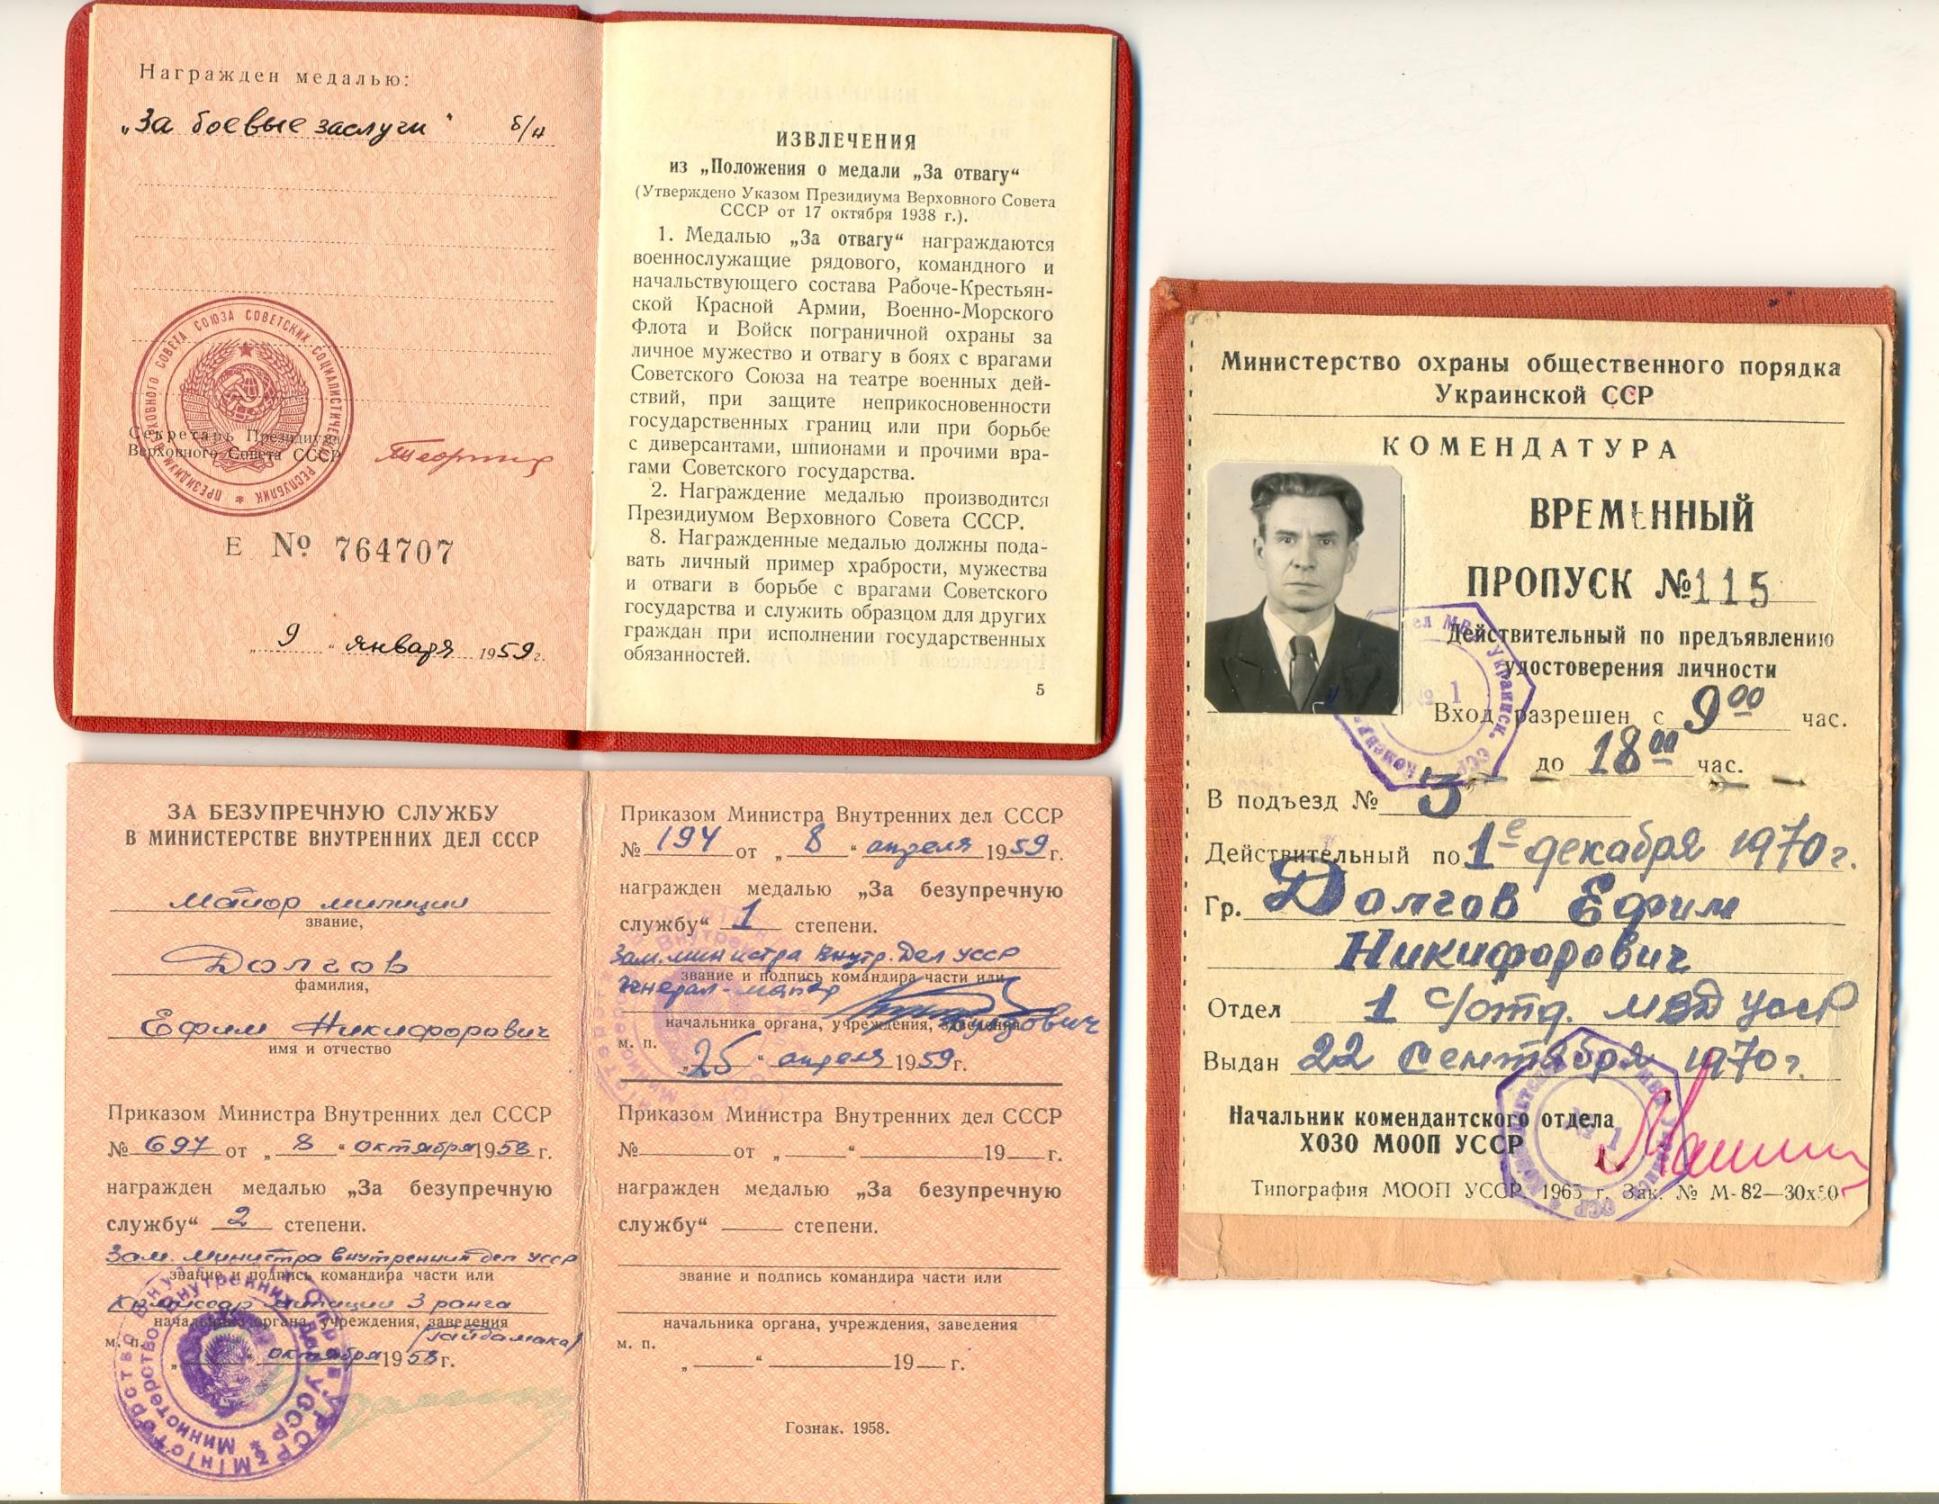 Награжден медалью:
„За боевые заслуги“ б/н
ПРЕЗИДИУМ ВЕРХОВНОГО СОВЕТА СОЮЗА СОВЕТСКИХ СОЦИАЛИСТИЧЕСКИХ РЕСПУБЛИК
Секретарь Президиума
Верховного Совета СССР
Е № 764707
„ 9 “ января 1959 г.
ИЗВЛЕЧЕНИЯ
из „Положения о медали „За отвагу“
(Утверждено Указом Президиума Верховного Совета
СССР от 17 октября 1938 г.).
1. Медалью „За отвагу“ награждаются
военнослужащие рядового, командного и
начальствующего состава Рабоче-Крестьян-
ской Красной Армии, Военно-Морского
Флота и Войск пограничной охраны за
личное мужество и отвагу в боях с врагами
Советского Союза на театре военных дей-
ствий, при защите неприкосновенности
государственных границ или при борьбе
с диверсантами, шпионами и прочими вра-
гами Советского государства.
2. Награждение медалью производится
Президиумом Верховного Совета СССР.
8. Награжденные медалью должны пода-
вать личный пример храбрости, мужества
и отваги в борьбе с врагами Советского
государства и служить образцом для других
граждан при исполнении государственных
обязанностей.
5
ЗА БЕЗУПРЕЧНУЮ СЛУЖБУ
В МИНИСТЕРСТВЕ ВНУТРЕННИХ ДЕЛ СССР
Майор милиции
звание,
Долгов
фамилия,
Ефим Никифорович
имя и отчество
Приказом Министра Внутренних дел СССР
№ 697 от „ 8 “ октября 1958 г.
награжден медалью „За безупречную
службу“ 2 степени.
Зам. Министра внутренних дел УССР
звание и подпись командира части или
Комиссар милиции 3 ранга
начальника органа, учреждения, заведения
(Гайдамака)
м. п.
„ “ октября 1958 г.
Приказом Министра Внутренних дел СССР
№ 194 от „ 8 “ апреля 1959 г.
награжден медалью „За безупречную
службу“ 1 степени.
Зам. министра Внутр. Дел УССР
звание и подпись командира части или
генерал-майор
начальника органа, учреждения, заведения
м. п.
„25“ апреля 1959 г.
Приказом Министра Внутренних дел СССР
№ от „ “ 19 г.
награжден медалью „За безупречную
службу“ степени.
звание и подпись командира части или
начальника органа, учреждения, заведения
м. п.
„ “ 19 г.
Гознак. 1958.
Министерство охраны общественного порядка
Украинской ССР
КОМЕНДАТУРА
ВРЕМЕННЫЙ
ПРОПУСК № 115
Действительный по предъявлению
удостоверения личности
Вход разрешен с 9 00 час.
до 18 00 час.
В подъезд № 3
Действительный по 1е декабря 1970 г.
Гр. Долгов Ефим
Никифорович
Отдел 1 с/отд. МВД УССР
Выдан 22 сентября 1970 г.
Начальник комендантского отдела
ХОЗО МООП УССР
Типография МООП УССР, 1965 г. Зак. № М-82—30х50